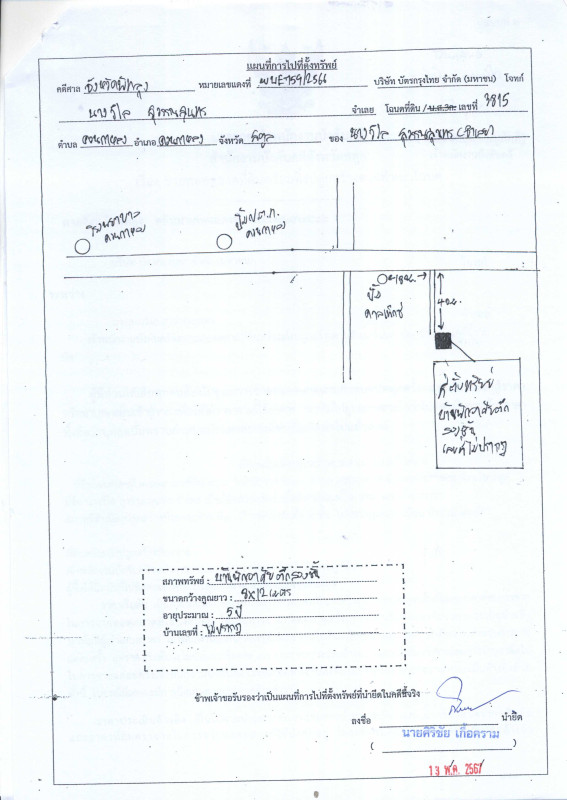 แผนที่การไปที่ตั้งทรัพย์
คดีศาล จังหวัดพัทลุง หมายเลขแดงที่ ผบE759/2566 บริษัท บัตรกรุงไทย จำกัด (มหาชน) โจทก์
นางวิไล จำเลย โฉนดที่ดิน / น.ส.3ก. เลขที่ 3815
ตำบล ควนกาหลง อำเภอ ควนกาหลง จังหวัด สตูล ของ นางวิไล (จำเลย)
โรงพยาบาล
ควนกาหลง
ปั๊มป.ต.ท.
ควนกาหลง
ปั๊ม
คาลเท็กซ์
ที่ตั้งทรัพย์
บ้านพักอาศัยตึก
สองชั้น
เลขที่ไม่ปรากฏ
สภาพทรัพย์ : บ้านพักอาศัยตึกสองชั้น
ขนาดกว้างคูณยาว : 8X12 เมตร
อายุประมาณ : 5 ปี
บ้านเลขที่ : ไม่ปรากฏ
ข้าพเจ้าขอรับรองว่าเป็นแผนที่การไปที่ตั้งทรัพย์ที่นำยึดในคดีนี้จริง
ลงชื่อ นำยึด
( นายศิริชัย เกื้อคราม )
13 พ.ค. 2567